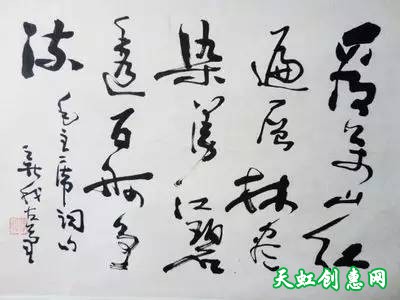 看万山红
遍层林尽
染漫江碧
透百舸争
流
毛主席词句
天虹创惠网